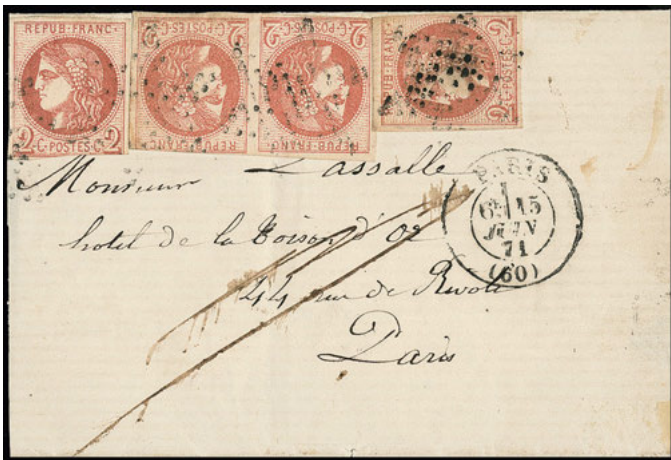 REPUB·FRANC·
2-C·POSTES·C-2
REPUB·FRANC
2-C·POSTES·C-2
REPUB·FRANC
2-C·POSTES·C-2
PUB·FRANC·
-C·POSTES·C-2
Monsieur Lassalle
hotel de la Toison d'Or
44 rue de Rivoli
Paris
PARIS
6E 15
JUIN
71
(60)